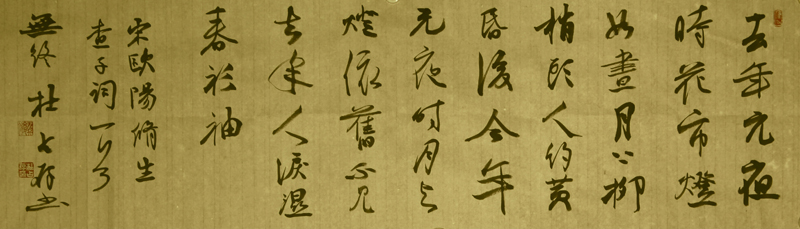 去年元夜
時花市燈
如晝月上柳
梢頭人約黃
昏後今年
元夜时月与
燈依舊不見
去年人淚濕
春衫袖
宋歐陽脩生
查子詞一首
無終杜 書